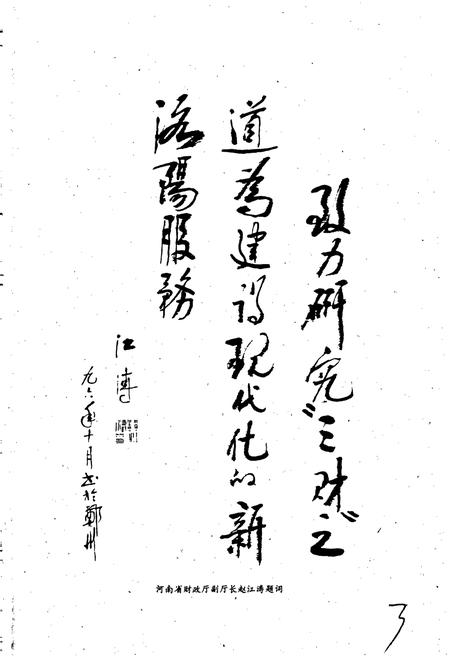 致力研究“三财”之
道為建设现代化的新
洛陽服務
江涛
九六年十月书於鄭州
河南省财政厅副厅长赵江涛题词
3